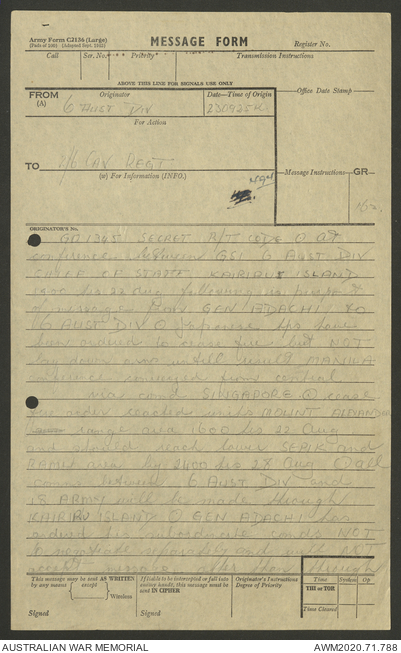 Army Form C2136 (Large)
(Pads of 100) (Adopted Sept. 1935)
MESSAGE FORM
Register No.
Call
Ser. No.
Priority
Transmission Instructions
ABOVE THIS LINE FOR SIGNALS USE ONLY
FROM
(A)
Originator
6 AUST DIV
Date—Time of Origin
230925K
Office Date Stamp
For Action
TO
2/6 CAV REGT
(w) For Information (INFO.)
Message Instructions
GR
ORIGINATOR'S No.
GO 1305 SECRET R/T CODE O at
conference between GSI 6 AUST DIV
CHIEF OF STAFF KAIRIRU ISLAND
hrs 22 Aug following was
of message from GEN ADACHI to
6 AUST DIV O Japanese tps have
been ordered to cease fire but NOT
lay down arms until result MANILA
conveyed from central
via comd SINGAPORE O cease
fire order reached units MOUNT ALEXANDER
range area 1600 hrs 22 Aug
and should reach lower SEPIK and
RAMU area by 2400 hrs 28 Aug O all
between 6 AUST DIV and
18 ARMY will be made through
KAIRIRU ISLAND O GEN ADACHI has
comds NOT
to negotiate separately and will NOT
accept message other than through
This message may be sent AS WRITTEN
by any means
(except
)
Wireless
Signed
If liable to be intercepted or fall into
enemy hands, this message must be
sent IN CIPHER
Signed
Originator's Instructions
Degree of Priority
Time
System
Op
THI or TOR
Time Cleared
AUSTRALIAN WAR MEMORIAL
AWM2020.71.788